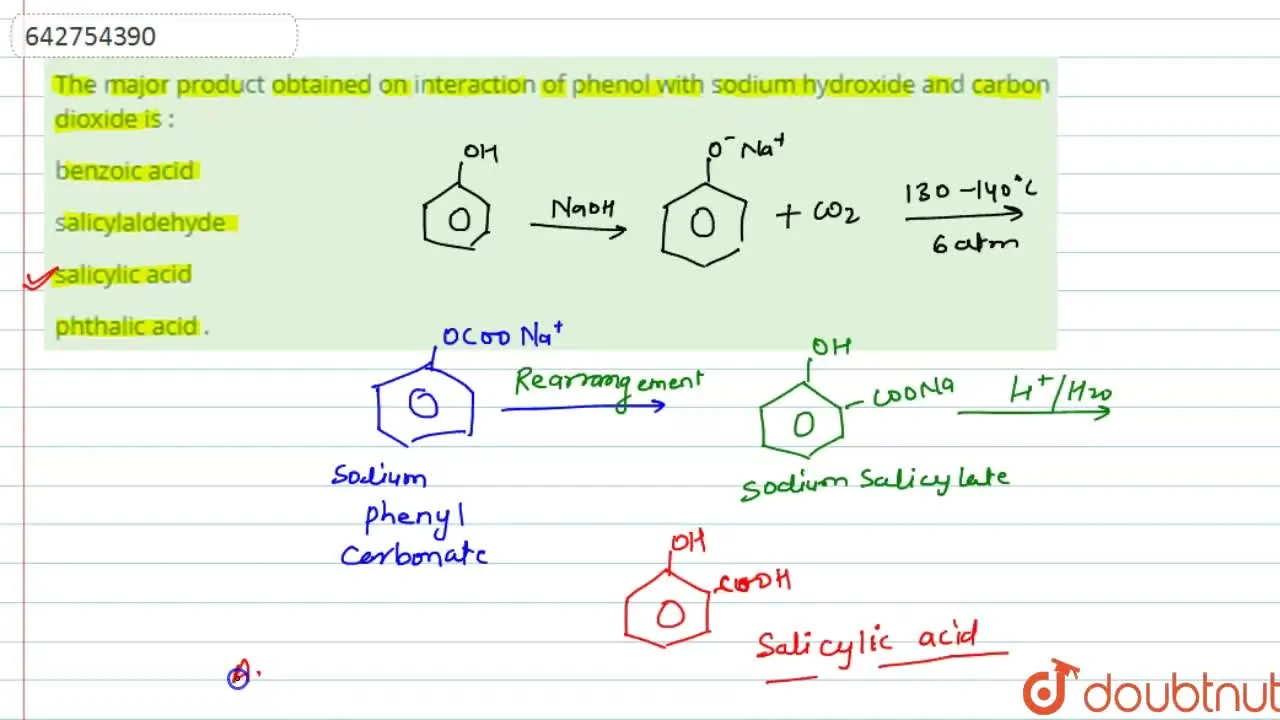 642754390
The major product obtained on interaction of phenol with sodium hydroxide and carbon
dioxide is :
benzoic acid
salicylaldehyde
salicylic acid
phthalic acid .
OH
NaOH
O⁻ Na⁺
+ CO2
130-140°C
6 atm
OCOO Na⁺
Rearrangement
OH
COONa
H⁺/H2O
Sodium
phenyl
Carbonate
Sodium Salicylate
OH
COOH
Salicylic acid
A.
doubtnut